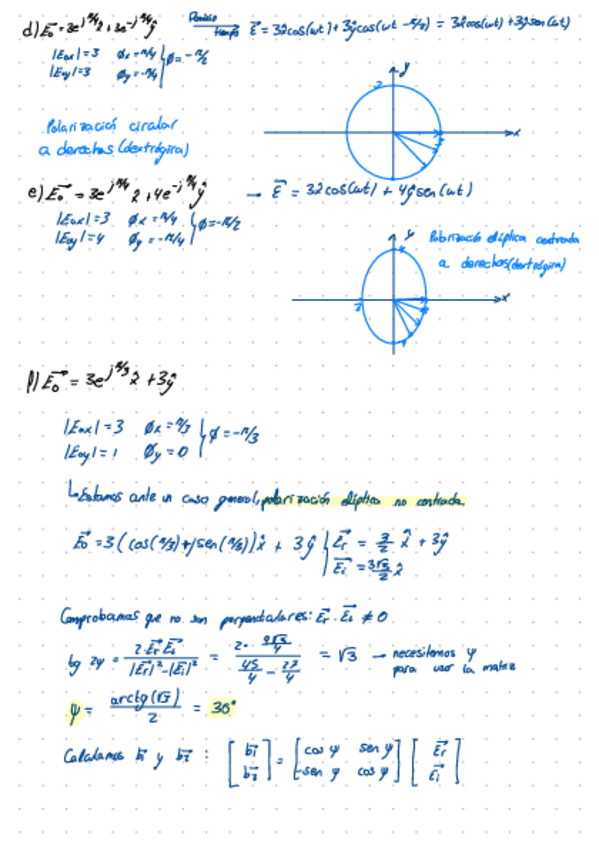 d) E₀ = 3e^{jπ/4} x̂ + 3e^{-jπ/4} ŷ → Dominio tiempo ε = 3x̂cos(ωt) + 3ŷcos(ωt - π/2) = 3x̂cos(ωt) + 3ŷsen(ωt)
|E₀x| = 3 Øx = π/4
|E₀y| = 3 Øy = -π/4 } Ø = -π/2
y
x
Polarización circular
a derechas (dextrógira)
e) E₀ = 3e^{jπ/4} x̂ + 4e^{-jπ/4} ŷ → ε = 3x̂cos(ωt) + 4ŷsen(ωt)
|E₀x| = 3 Øx = π/4
|E₀y| = 4 Øy = -π/4 } Ø = -π/2
y
x
3
Polarización elíptica centrada
a derechas (dextrógira)
f) E₀ = 3e^{jπ/3} x̂ + 3ŷ
|E₀x| = 3 Øx = π/3
|E₀y| = 1 Øy = 0 } Ø = -π/3
↳ Estamos ante un caso general, polarización elíptica no centrada.
E₀ = 3(cos(π/3) + jsen(π/3))x̂ + 3ŷ { Er = 3/2 x̂ + 3ŷ
Ei = 3√3/2 x̂
Comprobamos que no son perpendiculares: Er · Ei ≠ 0
tg 2ψ = 2·Er·Ei / (|Er|² - |Ei|²) = (2 · 9√3/4) / (45/4 - 27/4) = √3 → necesitamos ψ
para usar la matriz
ψ = arctg(√3) / 2 = 30°
Calculamos b₁ y b₂ : [b₁ b₂] = [cos ψ sen ψ -sen ψ cos ψ] [Er Ei]